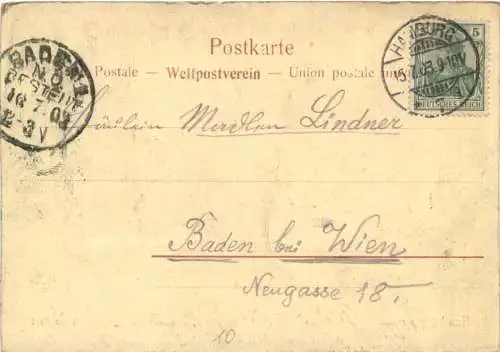 Postkarte
Postale — Weltpostverein — Union postale
HAMBURG
15.7.03.9-10V
5
DEUTSCHES REICH
BADEN
N.Ö.
BESTELLT
16 7 03
Fräulein Madlen Lindner
Baden bei Wien
Neugasse 18.
10